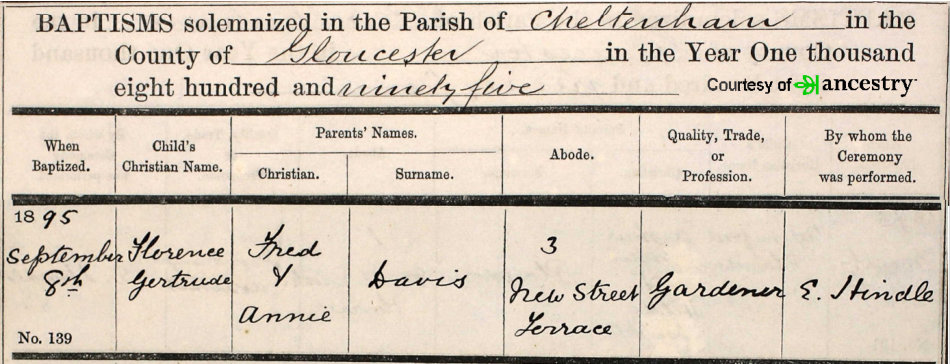 BAPTISMS solemnized in the Parish of Cheltenham in the
County of Gloucester in the Year One thousand
eight hundred and ninety five
Courtesy of ancestry
When Baptized.
Child's Christian Name.
Parents' Names.
Christian.
Surname.
Abode.
Quality, Trade, or Profession.
By whom the Ceremony was performed.
1895
September 8th
No. 139
Florence
Gertrude
Fred
&
Annie
Davis
3
New Street
Terrace
Gardener
E. Hindle